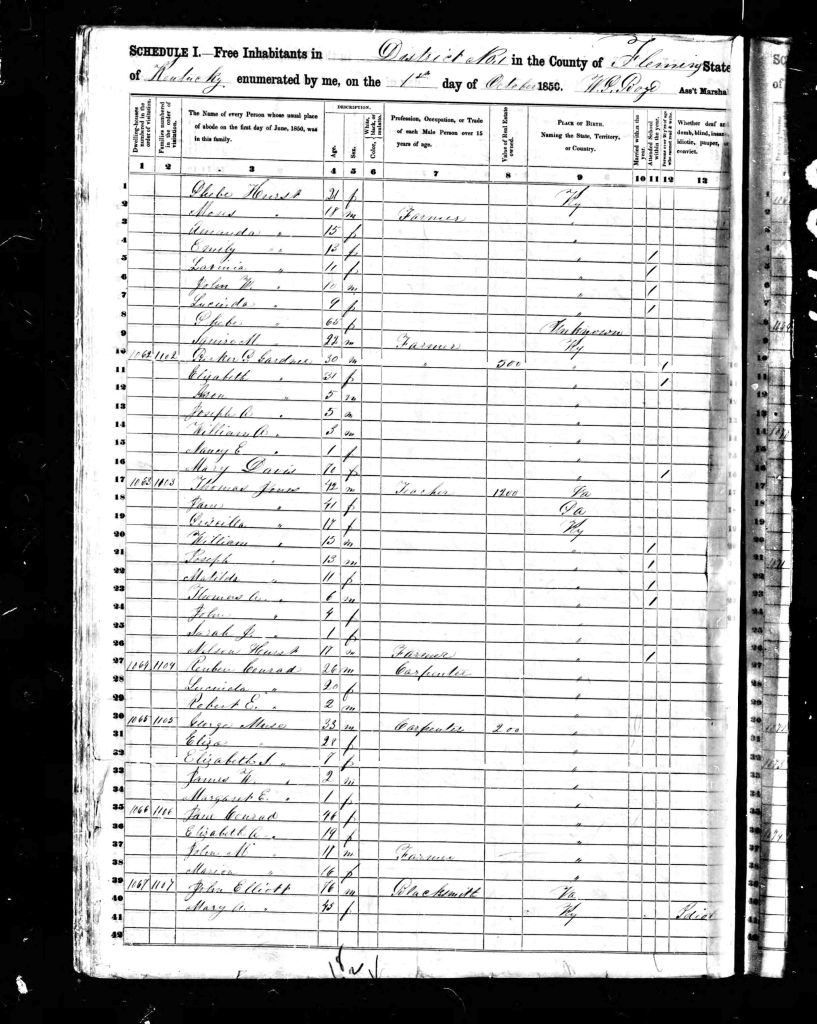 SCHEDULE I.—Free Inhabitants in District No 1 in the County of Fleming State
of Kentucky enumerated by me, on the 1st day of October 1850. Ass't Marshal
DESCRIPTION.
Dwelling-houses numbered in the order of visitation.
Families numbered in the order of visitation.
The Name of every Person whose usual place of abode on the first day of June, 1850, was in this family.
Age.
Sex.
Color, White, black, or mulatto.
Profession, Occupation, or Trade of each Male Person over 15 years of age.
Value of Real Estate owned.
PLACE OF BIRTH. Naming the State, Territory, or Country.
Married within the year.
Attended School within the year.
Whether deaf and dumb, blind, insane, idiotic, pauper, or convict.
1 2 3 4 5 6 7 8 9 10 11 12 13
1 Phebe Hurst 21 f Ky
2 18 m Farmer "
3 Amanda " 15 f "
4 Emily " 13 f " 1
5 Lavinia " 11 f " 1
6 John W. " 10 m " 1
7 Lucinda " 9 f " 1
8 Phebe " 65 f Unknown
9 Squire M " 22 m Farmer Ky
10 1062 1102 30 m " 500 " 1
11 Elizabeth " 31 f " 1
12 " 5 m "
13 Joseph A. " 5 m "
14 William A. " 3 m "
15 Nancy E. " 1 f "
16 Mary Davis 70 f " 1
17 1063 1103 Thomas Jones 42 m Teacher 1200 Va
18 Jane " 41 f Pa
19 " 17 f Ky
20 William " 15 m " 1
21 Joseph " 13 m " 1
22 Matilda " 11 f " 1
23 Thomas A. " 6 m " 1
24 John " 4 f "
25 Sarah J. " 1 f "
26 Nelson Hurst 17 m Farmer " 1
27 1064 1104 Reuben Conrad 26 m Carpenter "
28 Lucinda " 20 f "
29 Robert E. " 2 m "
30 1065 1105 George Muse 33 m Carpenter 200 "
31 Eliza " 28 f "
32 Elizabeth A. " 7 f "
33 James W. " 2 m "
34 Margaret E. " 1 f "
35 1066 1106 Jane Conrad 46 f "
36 Elizabeth A. " 19 f "
37 John M " 18 m Farmer "
38 " 16 f "
39 1067 1107 John Elliott 76 m Blacksmith Va
40 Mary A. " 45 f Ky Idiot
41
42